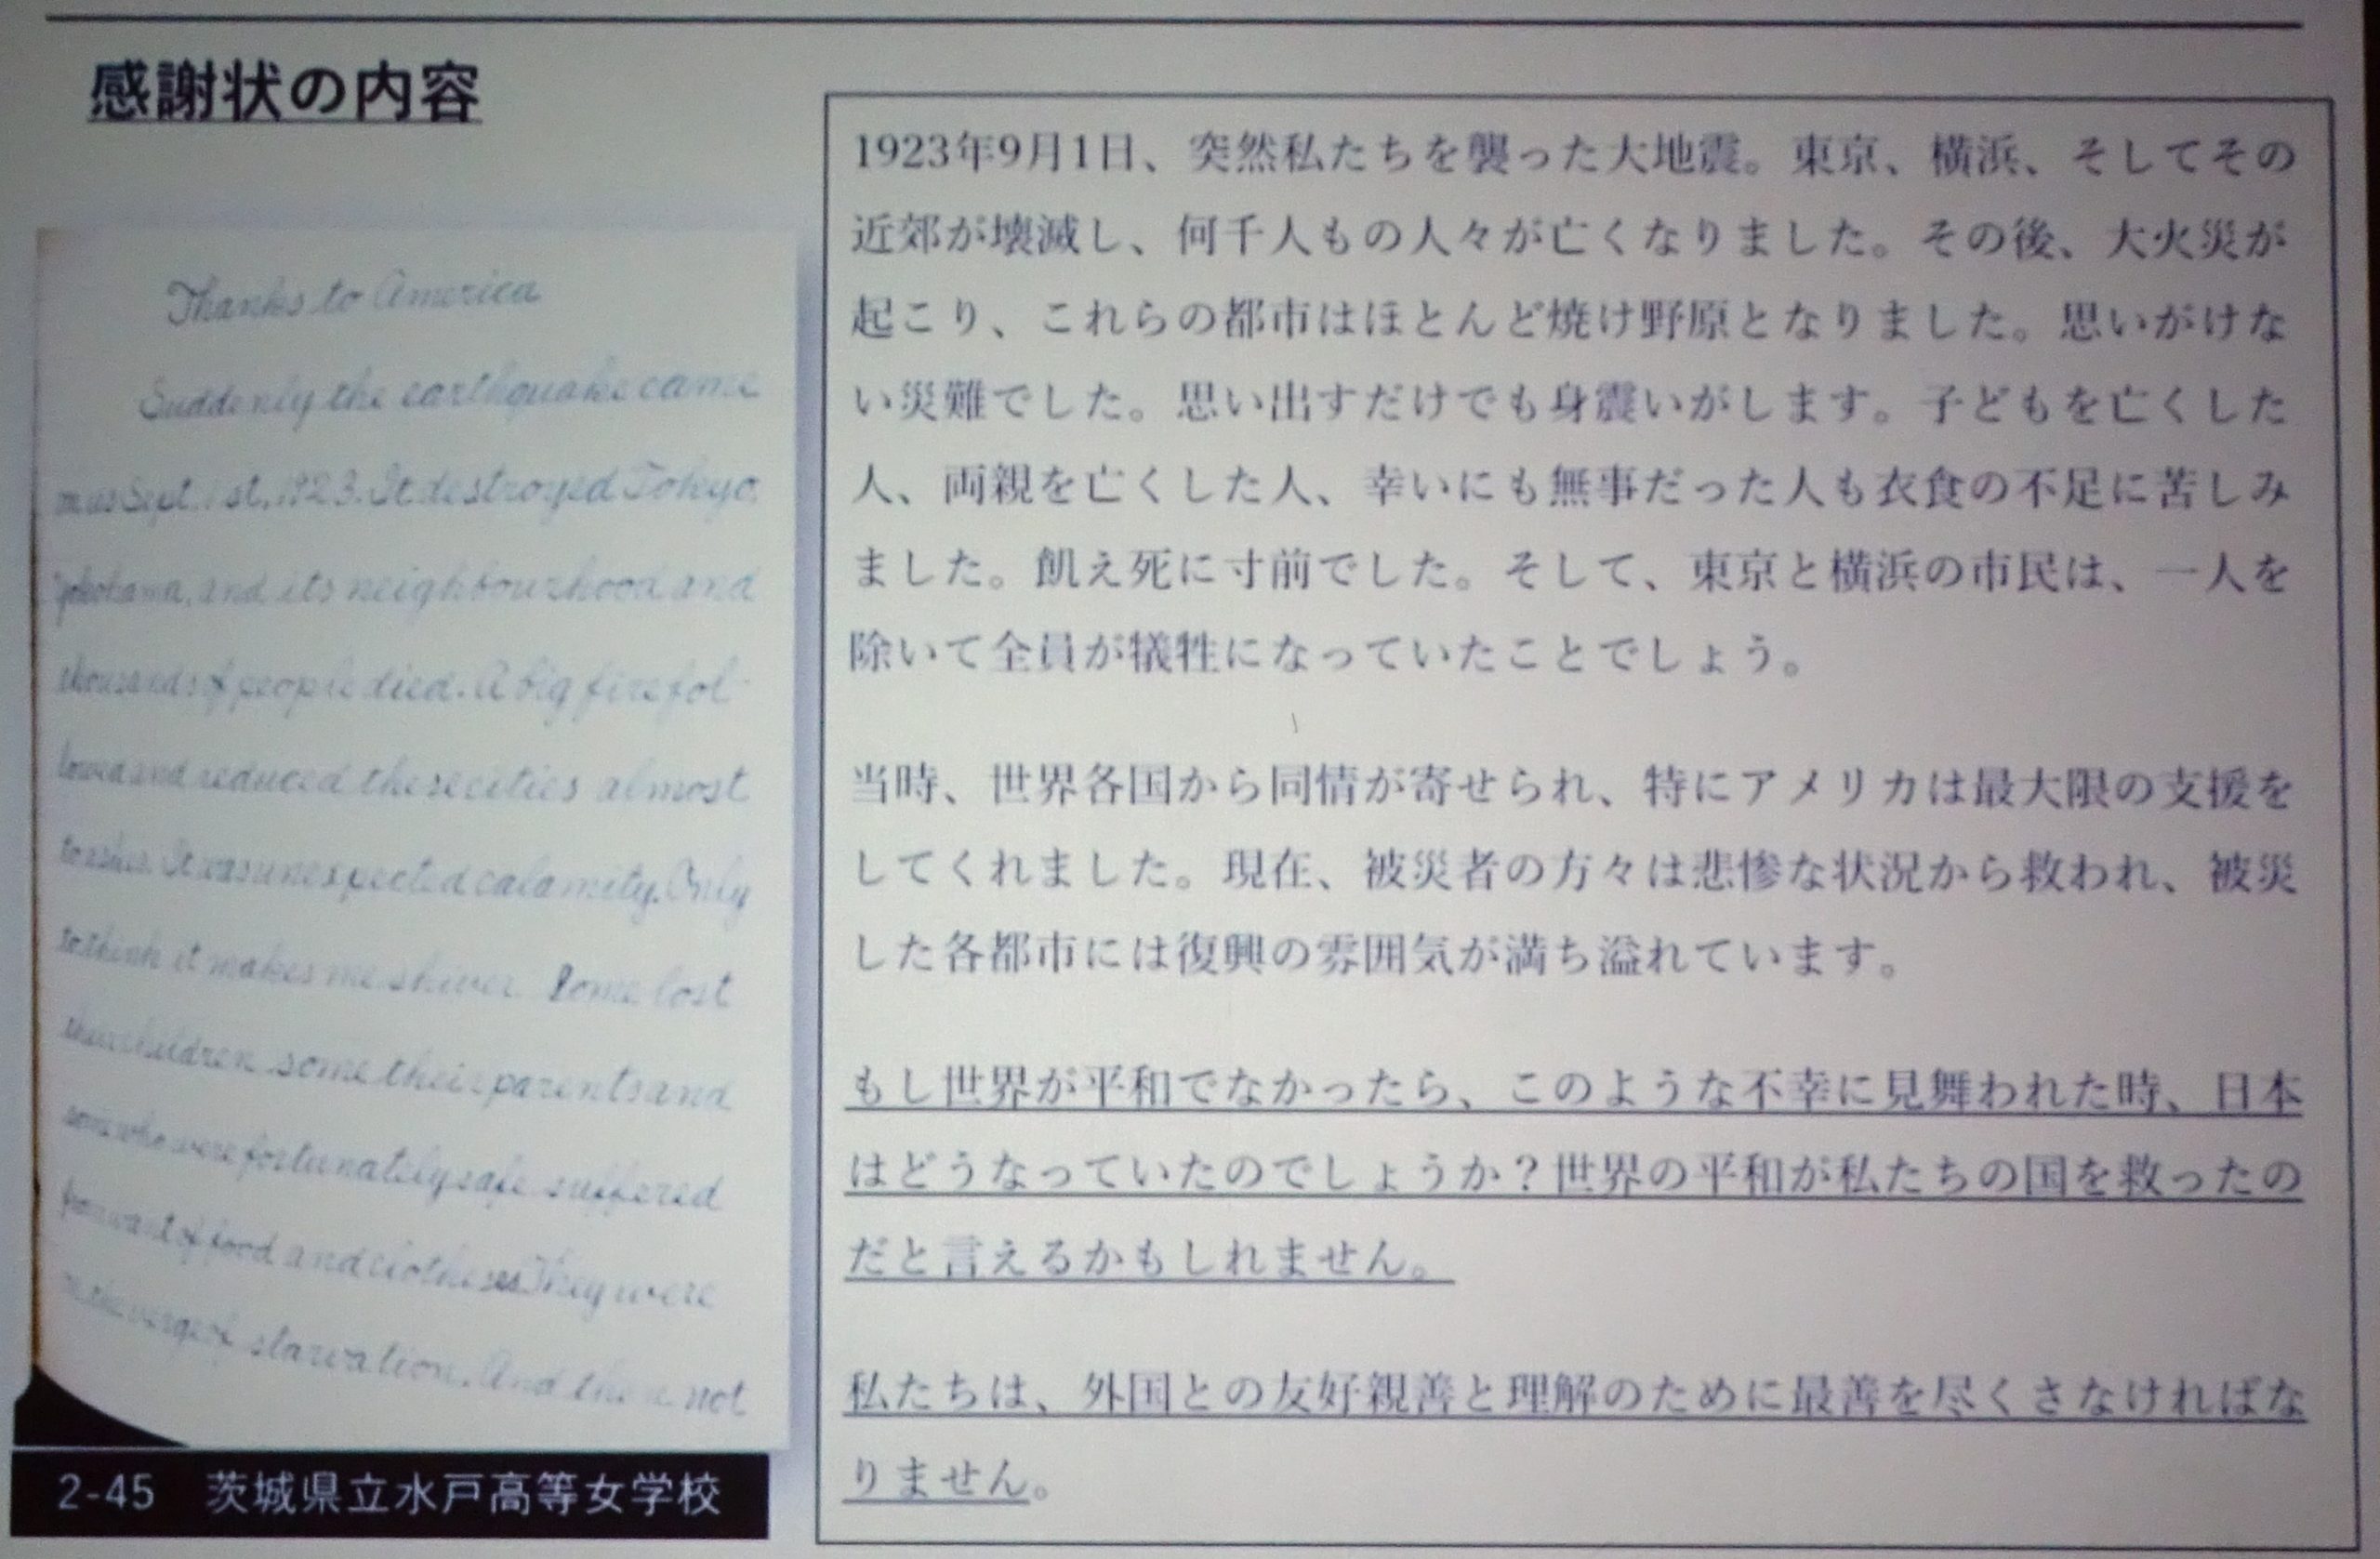 感謝状の内容
Thanks to America
Suddenly the earthquake came
on us Sept. 1st, 1923. It destroyed Tokyo,
Yokohama, and its neighbourhood and
thousands of people died. A big fire fol-
lowed and reduced these cities almost
to ashes. It was unexpected calamity. Only
to think it makes me shiver. Some lost
their children some their parents and
some who were fortunately safe suffered
from want of food and clotheses. They were
on the verge of starvation. And then not
2-45 茨城県立水戸高等女学校
1923年9月1日、突然私たちを襲った大地震。東京、横浜、そしてその
近郊が壊滅し、何千人もの人々が亡くなりました。その後、大火災が
起こり、これらの都市はほとんど焼け野原となりました。思いがけな
い災難でした。思い出すだけでも身震いがします。子どもを亡くした
人、両親を亡くした人、幸いにも無事だった人も衣食の不足に苦しみ
ました。飢え死に寸前でした。そして、東京と横浜の市民は、一人を
除いて全員が犠牲になっていたことでしょう。
当時、世界各国から同情が寄せられ、特にアメリカは最大限の支援を
してくれました。現在、被災者の方々は悲惨な状況から救われ、被災
した各都市には復興の雰囲気が満ち溢れています。
もし世界が平和でなかったら、このような不幸に見舞われた時、日本
はどうなっていたのでしょうか？世界の平和が私たちの国を救ったの
だと言えるかもしれません。
私たちは、外国との友好親善と理解のために最善を尽くさなければな
りません。